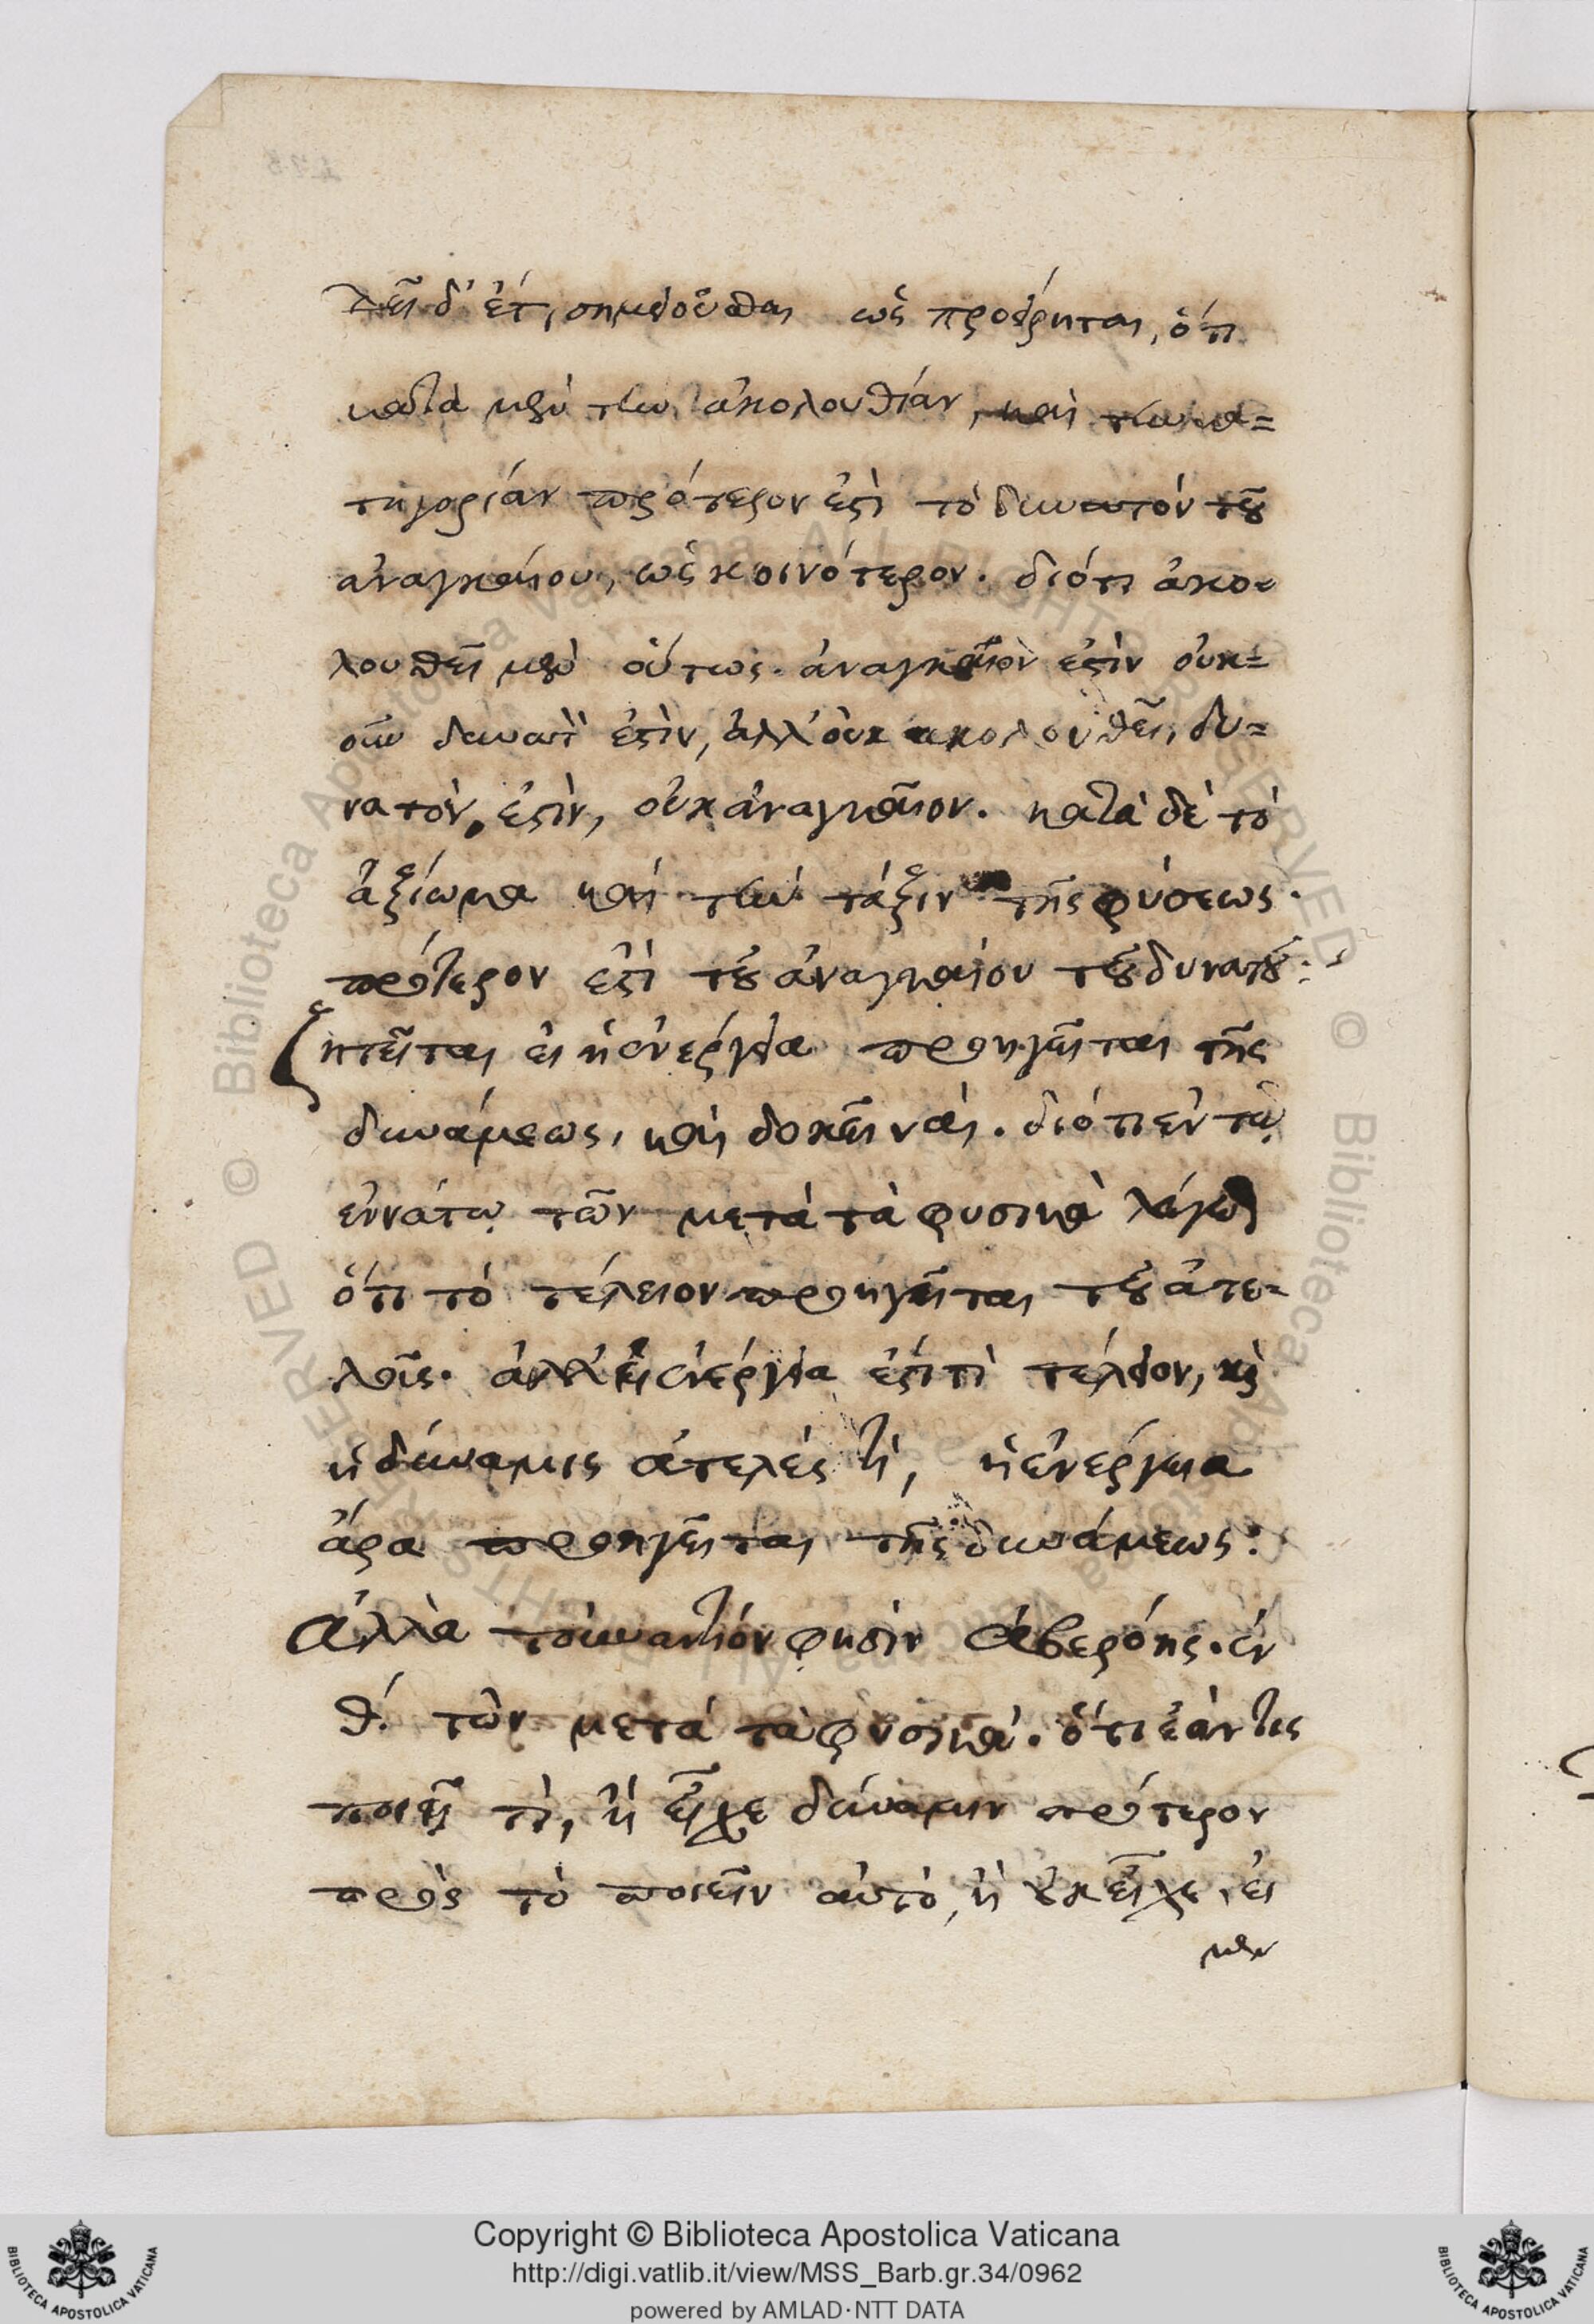 δεῖ δ' ἔτι σημειοῦσθαι ὡς προείρηται, ὅτι
κατὰ μὲν τὴν ἀκολουθίαν, καὶ τὴν κα=
τηγορίαν πρότερον ἐστὶ τὸ δυνατὸν τοῦ
ἀναγκαίου, ὡς κοινότερον. διότι ἀκο=
λουθεῖ μὲν οὕτως. ἀναγκαῖον ἐστὶν οὐκ=
οῦν δυνατὸν ἐστὶν, ἀλλ' οὐκ ἀκολουθεῖ, δυ=
νατὸν, ἐστὶν, οὐκ ἀναγκαῖον. κατὰ δὲ τὸ
ἀξίωμα καὶ τὴν τάξιν τῆς φύσεως.
πρότερον ἐστὶ τοῦ ἀναγκαίου τοῦ δυνατοῦ:
ζητεῖται εἰ ἡ ἐνέργεια προηγεῖται τῆς
δυνάμεως, καὶ δοκεῖ ναί. διότι ἐν τῷ
ἐννάτῳ τῶν μετὰ τὰ φυσικὰ
ὅτι τὸ τέλειον προηγεῖται τοῦ ἀτε=
λοῖς. ἀλλ' ἡ ἐνέργεια ἐστί τι τέλειον, καὶ
ἡ δύναμις ἀτελές τι, ἡ ἐνέργεια
ἄρα προηγεῖται τῆς δυνάμεως:
Ἀλλὰ τοὐναντίον φησὶν ἀβερόης. ἐν
θ΄. τῶν μετὰ τὰ φυσικά. ὅτι ἐάν τις
ποιῇ τὶ, ἢ εἶχε δύναμιν πρότερον
πρὸς τὸ ποιεῖν αὐτὸ, ἢ οὐκ εἶχε, εἰ
μὲν
Copyright © Biblioteca Apostolica Vaticana
http://digi.vatlib.it/view/MSS_Barb.gr.34/0962
powered by AMLAD·NTT DATA